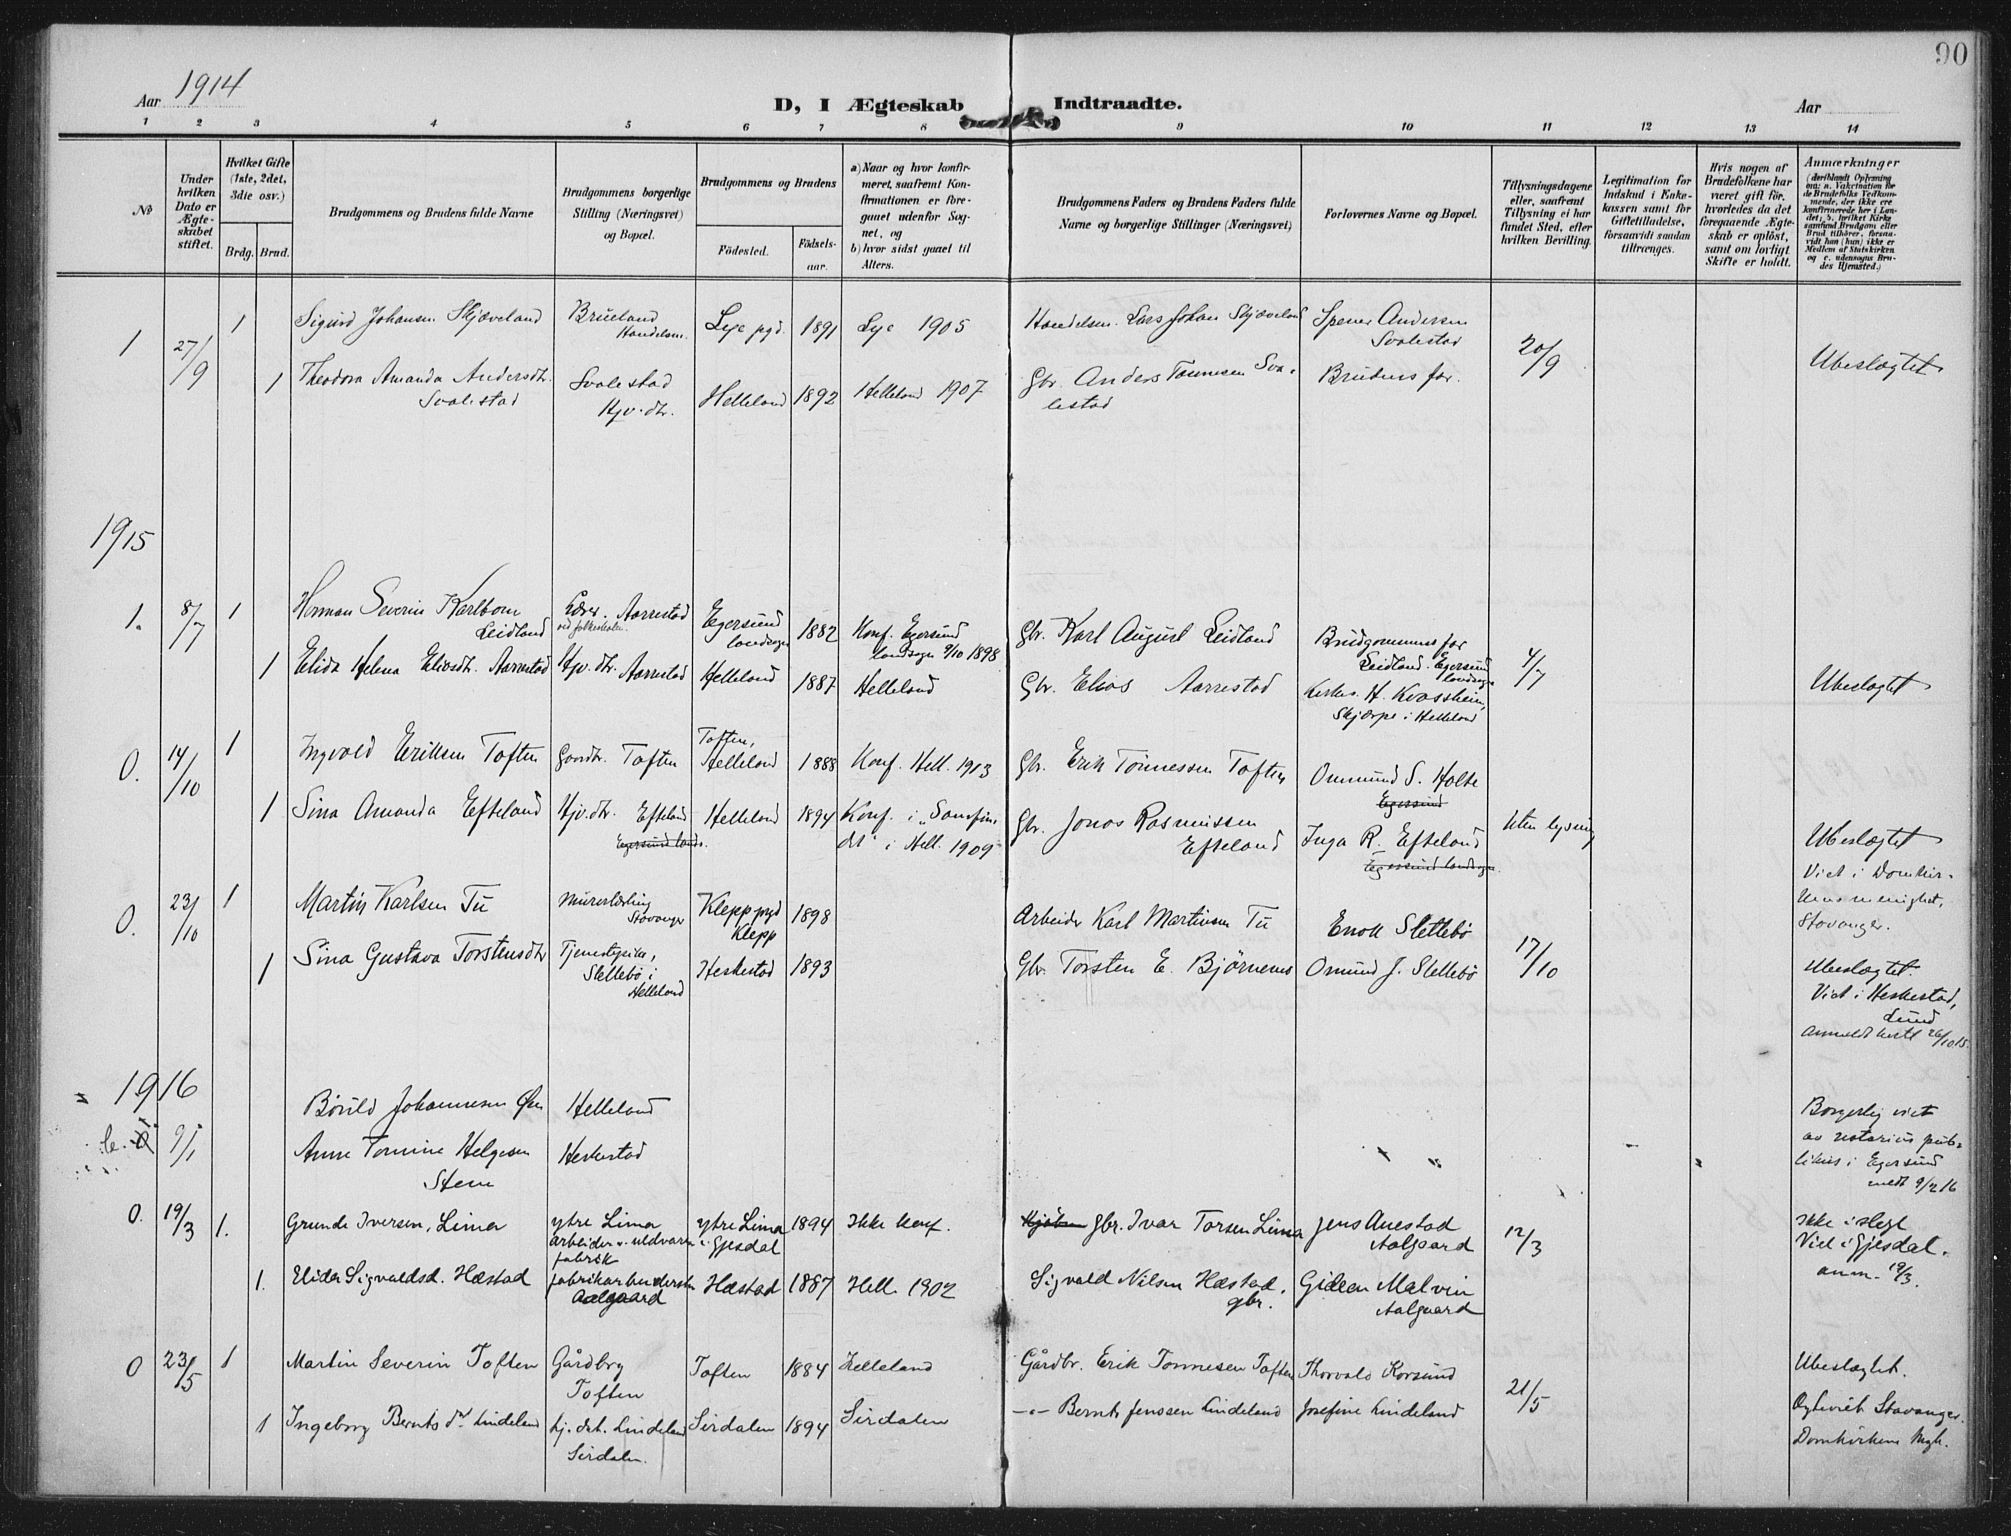 90
Aar 1914
D, I Ægteskab Indtraadte.
Aar
1 2 3 4 5 6 7 8 9 10 11 12 13 14
No
Under hvilken Dato er Ægteskabet stiftet.
Hvilket Gifte (1ste, 2det, 3die osv.)
Brdg. Brud.
Brudgommens og Brudens fulde Navne
Brudgommens borgerlige Stilling (Næringsvei) og Bopæl.
Brudgommens og Brudens
Födested.
Födselsaar.
a) Naar og hvor konfirmeret, saafremt Konfirmationen er foregaaet udenfor Sognet, og
b) hvor sidst gaaet til Alters.
Brudgommens Faders og Brudens Faders fulde Navne og borgerlige Stillinger (Næringsvei)
Forlovernes Navne og Bopæl.
Tillysningsdagene eller, saafremt Tillysning ei har fundet Sted, efter hvilken Bevilling.
Legitimation for Indskud i Enkekassen samt for Giftetilladelse, forsaavidt saadan tiltrænges.
Hvis nogen af Brudefolkene har været gift før, hvorledes da det foregaaende Ægteskab er oplöst, samt om lovligt Skifte er holdt.
Anmærkninger
(deriblandt Oplysning om: a. Vakcination for de Brudefolks Vedkommende, der ikke ere konfirmerede her i Landet; b. hvilket Kirkesamfund Brudgom eller Brud tilhörer, forsaavidt han (hun) ikke er Medlem af Statskirken og c. udensogns Brudes Hjemsted.)
1 27/9 1 Sigurd Johansen Skjæveland Brueland Handelsm. Lye pgd. 1891 Lye 1905 Handelsm. Lars Johan Skjæveland Andersen Svalestad 20/9
1 Theodora Amanda Andersdtr. Svalestad Svalestad Hjv. dtr. Helleland 1892 Helleland 1907 Gbr. Anders Tønnesen Svalestad Brudens far. Ubeslægtet
1915
1. 8/7 1 Herman Severin Karlbom Leidland Lærer. Aarrestad ved folkeskolen. Egersund landsogn 1882 Konf. Egersund landsogn 9/10 1898 Gbr. Karl August Leidland Brudgommens far Leidland. Egersund landsogn 4/7
1 Elida Helena Eliasdtr. Aarrestad Hjv. dtr. Aarrestad Helleland 1887 Helleland Gbr. Elias Aarrestad Kirkes. H. Kvassheim, Skjærpe i Helleland Ubeslægtet
0. 14/10 1 Ingvald Eriksen Toften Gaardbr. Toften Toften, Helleland 1888 Konf. Hell. 1903 Gbr. Erik Tønnessen Toften Ommund S. Holte Egersund
1 Sina Amanda Efteland Hjv. dtr. Efteland Egersund lands. Helleland 1894 Konf. i "Samfundet" i Hell. 1909 Gbr. Jonas Rasmussen Efteland Inga R. Efteland Egersund landsogn. Uten lysning Ubeslægtet
Viet i Domkirkens menighet, Stavanger.
0. 23/10 1 Martin Karlsen Tu Murerlærling Stavanger Klepp pgd Klepp 1898 Arbeider Karl Martinsen Tu Enok Slettebø
1 Sina Gustava Torstensdtr Tjenestepike, Slettebø i Helleland Heskestad 1893 Gbr. Torsten E. Bjørnenes Omund J. Slettebø 17/10 Ubeslægtet.
Viet i Heskestad, Lund
anmeldt hertil 26/10 15.
1916
9/1 Bårild Johannesen Helleland
Anne Tomine Helgesen Stene Heskestad
Borgerlig viet av notarius publikus i Egersund medt 9/2 16
0. 19/3 1. Grunde Iversen, Lima ytre Lima arbeider v. uldvarefabrik ytre Lima i Gjesdal 1894 Ikke konf. gbr. Ivar Torsen Lima Jens Auestad Aalgaard 12/3 Ikke i slegt
Viet i Gjesdal.
anm. 19/3.
1. Elida Sigvaldsd. Hæstad fabrikarbeiderske Aalgaard Hæstad 1887 Hell. 1902 Sigvald Nilsen Hæstad, gbr. Gideon Malvin Aalgaard
0 23/5 1 Martin Severin Toften Gårdbr Toften Toften 1884 Helleland Gårdbr. Erik Tonnesen Toften Thorvald Korsund 21/5 Ubeslægtet.
1 Ingeborg Bernts dr Lindeland hj. dat. Lindeland Sirdalen. Sirdalen 1894 Sirdalen –"– Bernt Jenssen Lindeland Josefine Lindeland
Stavanger Domkirkens Mgh.